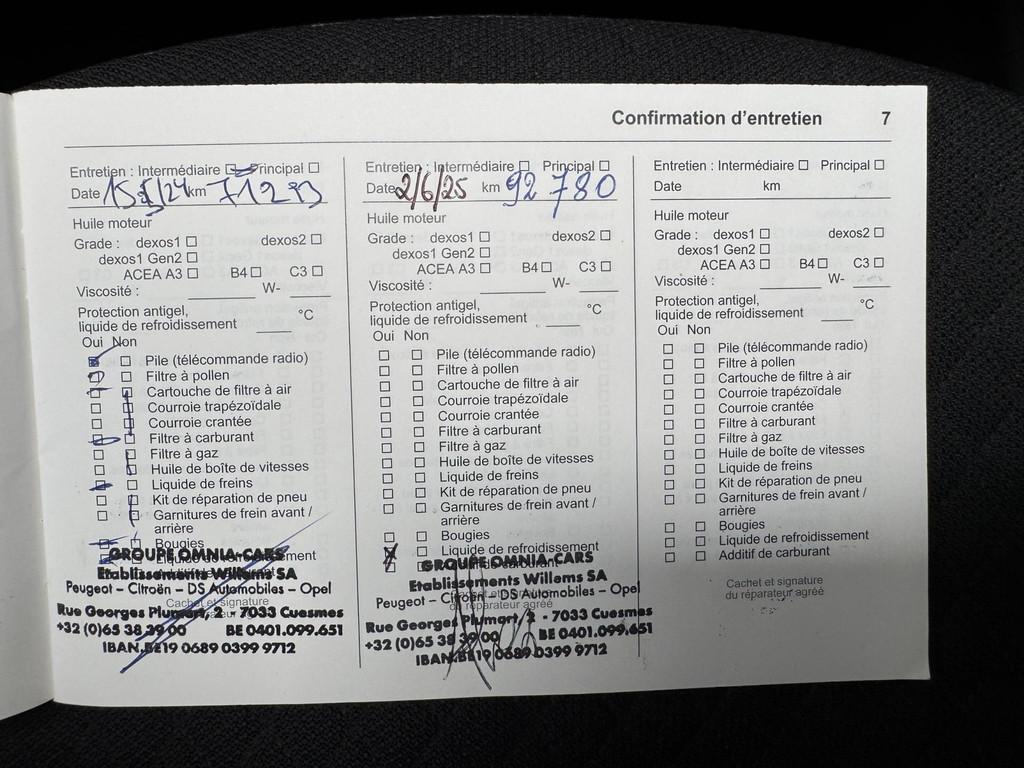 Confirmation d'entretien 7
Entretien : Intermédiaire ☐ Principal ☐
Date 15/5/24 km 71293
Huile moteur
Grade : dexos1 ☐ dexos2 ☐
dexos1 Gen2 ☐
ACEA A3 ☐ B4 ☐ C3 ☐
Viscosité : W-
Protection antigel,
liquide de refroidissement °C
Oui Non
Pile (télécommande radio)
Filtre à pollen
Cartouche de filtre à air
Courroie trapézoïdale
Courroie crantée
Filtre à carburant
Filtre à gaz
Huile de boîte de vitesses
Liquide de freins
Kit de réparation de pneu
Garnitures de frein avant /
arrière
Bougies
GROUPE OMNIA-CARS
Etablissements Willems SA
Peugeot – Citroën – DS Automobiles – Opel
Cachet et signature
Rue Georges Plumart, 2 - 7033 Cuesmes
+32 (0)65 38 39 00 BE 0401.099.651
IBAN.BE19 0689 0399 9712
Entretien : Intermédiaire ☐ Principal ☐
Date 2/6/25 km 92 780
Huile moteur
Grade : dexos1 ☐ dexos2 ☐
dexos1 Gen2 ☐
ACEA A3 ☐ B4 ☐ C3 ☐
Viscosité : W-
Protection antigel,
liquide de refroidissement °C
Oui Non
Pile (télécommande radio)
Filtre à pollen
Cartouche de filtre à air
Courroie trapézoïdale
Courroie crantée
Filtre à carburant
Filtre à gaz
Huile de boîte de vitesses
Liquide de freins
Kit de réparation de pneu
Garnitures de frein avant /
arrière
Bougies
Liquide de refroidissement
GROUPE OMNIA-CARS
Etablissements Willems SA
Peugeot – Citroën – DS Automobiles – Opel
du réparateur agréé
Rue Georges Plumart, 2 - 7033 Cuesmes
+32 (0)65 38 39 00 BE 0401.099.651
IBAN.BE19 0689 0399 9712
Entretien : Intermédiaire ☐ Principal ☐
Date km
Huile moteur
Grade : dexos1 ☐ dexos2 ☐
dexos1 Gen2 ☐
ACEA A3 ☐ B4 ☐ C3 ☐
Viscosité : W-
Protection antigel,
liquide de refroidissement °C
Oui Non
Pile (télécommande radio)
Filtre à pollen
Cartouche de filtre à air
Courroie trapézoïdale
Courroie crantée
Filtre à carburant
Filtre à gaz
Huile de boîte de vitesses
Liquide de freins
Kit de réparation de pneu
Garnitures de frein avant /
arrière
Bougies
Liquide de refroidissement
Additif de carburant
Cachet et signature
du réparateur agréé